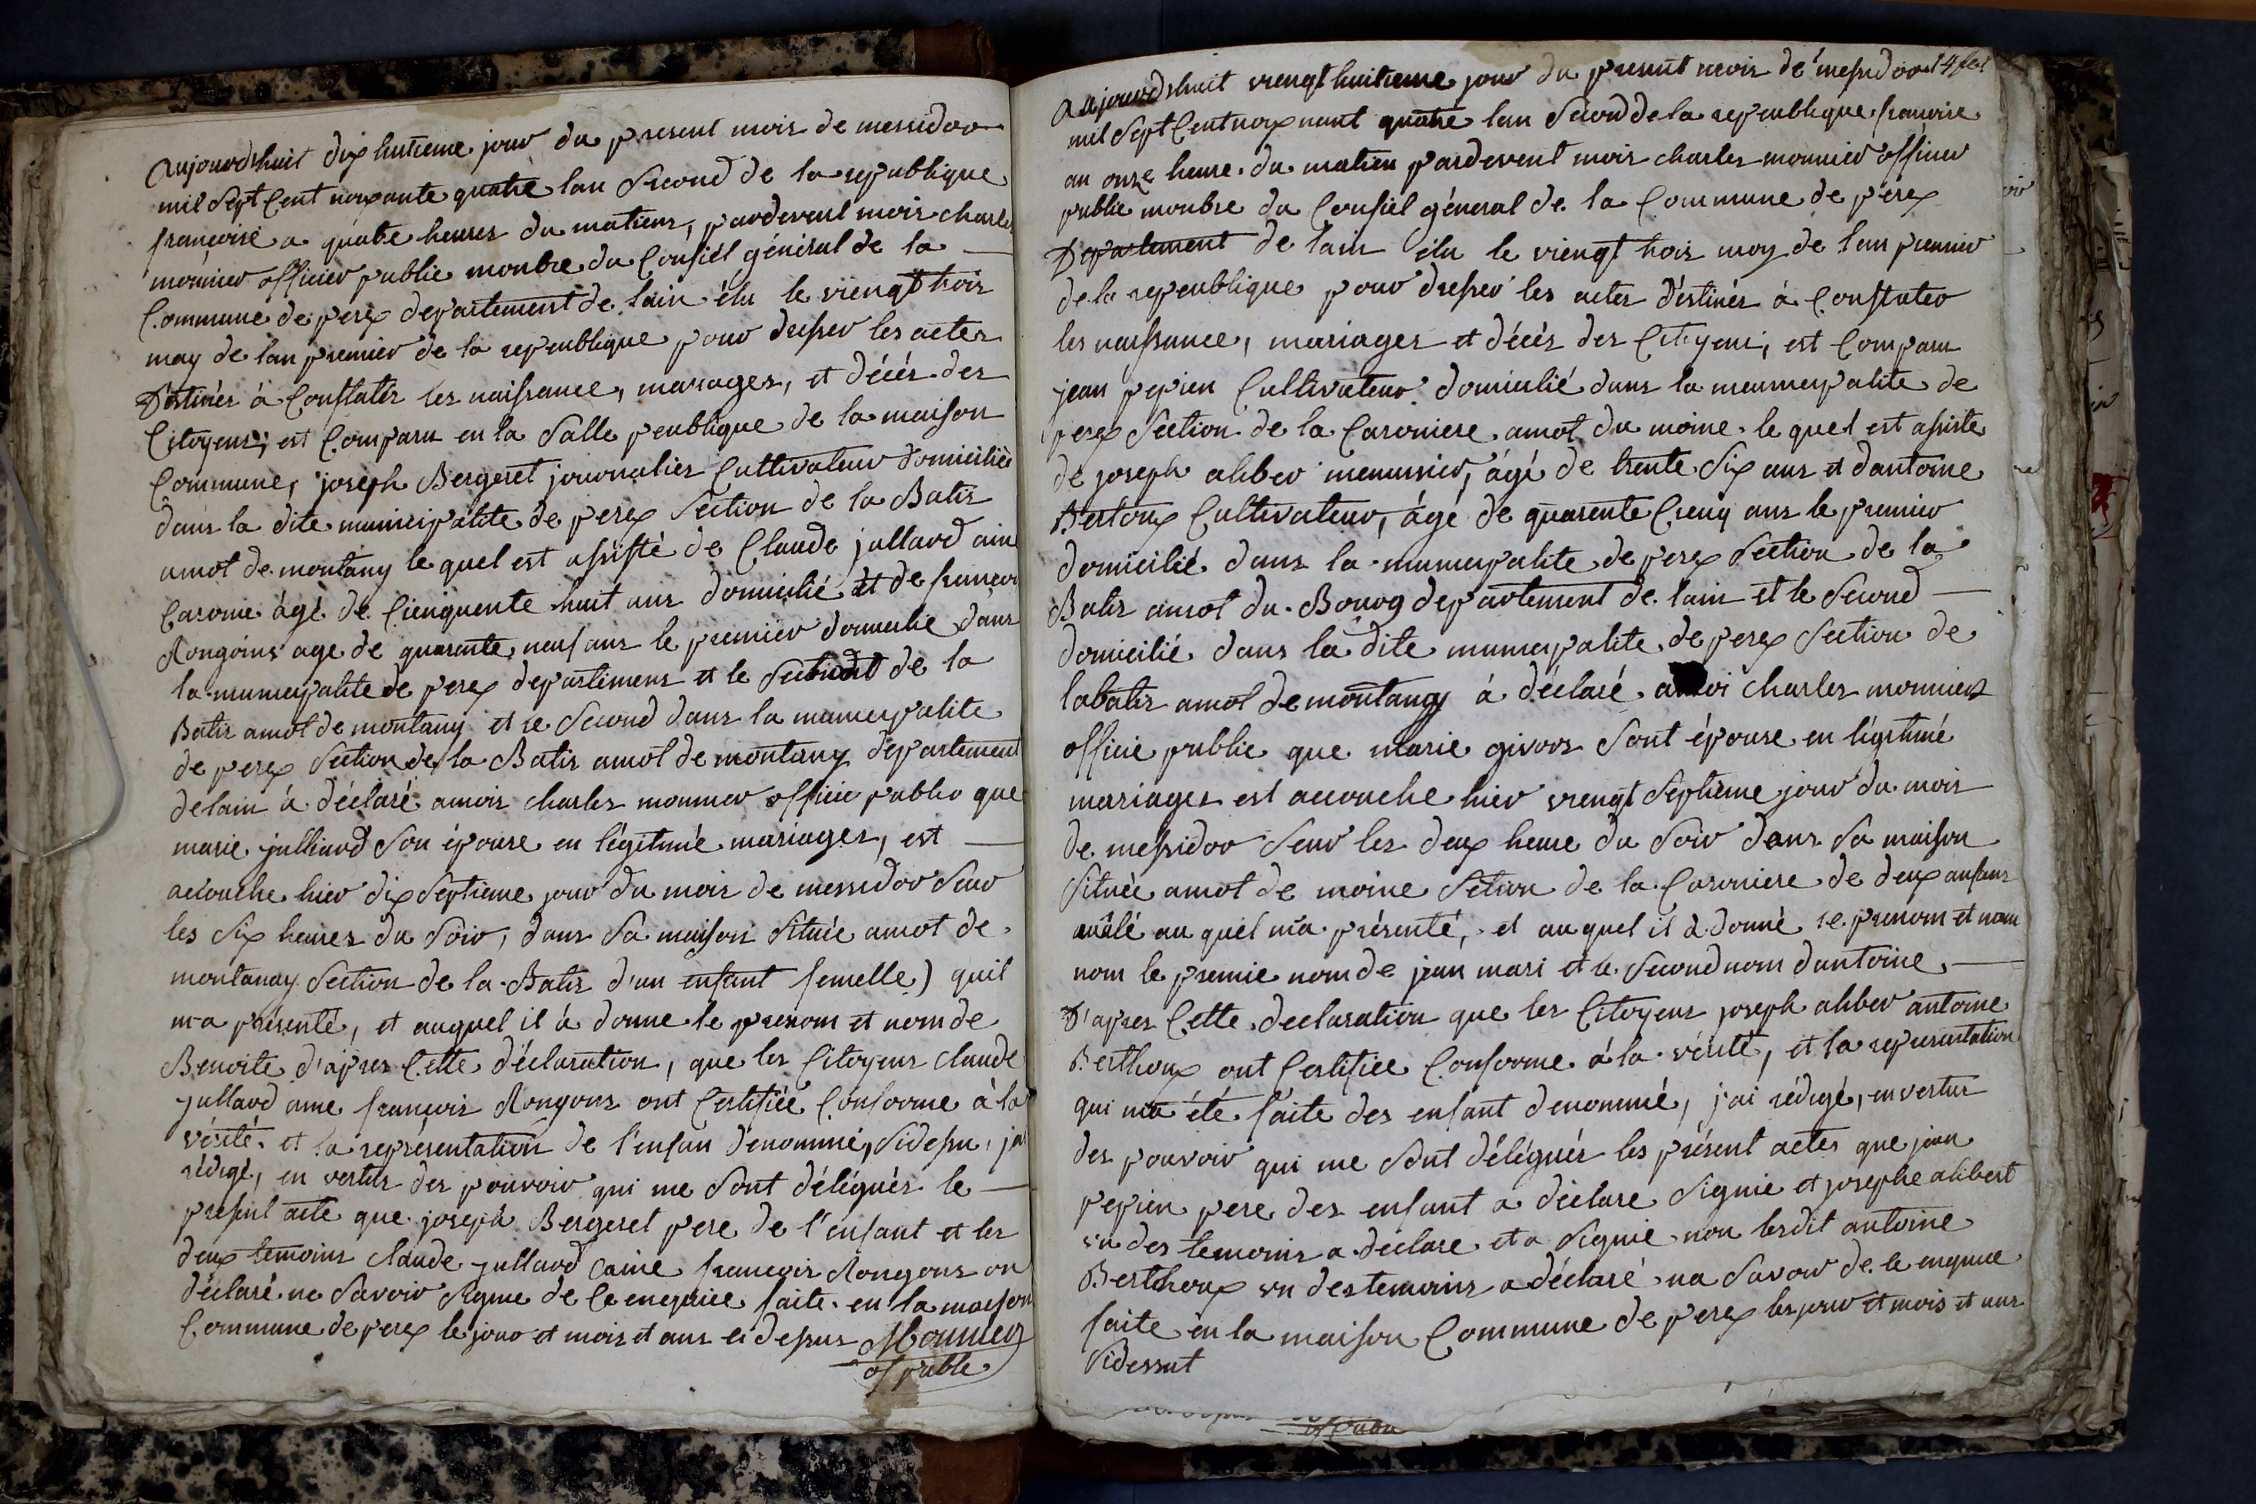 Aujourdshuit dix huitieme jour du present mois de messidor
mil Sept Cent noxante quatre lan Second de la republique
françoise a quatre heures du matiens, pardevent mois charles
monnier officier public monbre du Consiel général de la
Commune de perex departement de lain élu le viengt trois
may de lan premier de la republique pour dresser les actes
Déstinés à Constater les naissance, mariages, et décés des
Citoyens; est Comparu en la Salle peublique de la maison
Commune, joseph Bergeret journalier Cultivateur domiciliée
dans la dite municipalite de perex Section de la Batis
amot de montany le quel est assisté de Claude jullard ainé
Caronie âgé de Cienquente huit ans domicilié et de françois
Rongoins age de quarente neuf ans le premier domicilie dans
la municipalite de perex departiment et le Section de la
Batis amot de montany et le Second dans la municipalite
de perex Section de la Batis amot de montany departement
de lain à déclaré amois charles monnier officie public que
marie julliard Son épouse en légitimé mariages, est
acouche hier dix Septieme jour du mois de messidor Seur
les Six heures du Soir, dans Sa maison Située amot de
montanay Section de la Batis d'un enfant femelle) quil
ma présenté, et auquel il à donne le prenom et nom de
Benoite d'apres Cette déclaration, que les Citoyens claude
jullard aine françois Rongons ont Certifiée Conforme à la
vérité, et la représentation de l'enfan dénommé, Sidessu, jai
rédigé, en vertus des pouvoir qui me Sont délégués le
presént acte que joseph Bergeret pere de l'enfant et les
deux temoins claude jullard Lainé françois Rongons on
déclaré ne Savoir Signie de Ce enquice faite en la maison
Commune de perex le jour et mois et ans ci dessus Monnier
of public
Aujourdshuit viengt huitieme jour du present mois de messidor
mil Sept Cent nox nant quatre lan Second de la republique francoise
au onze heure du matien pardevent mois charles monnier officier
public monbre du Consiel géneral de la Commune de pérex
Departement de lain élu le viengt trois may de lan premier
de la repeublique pour dresser les actes déstinés à Constater
les naissance, mariages et décés des Citoyens, est Comparu
jean pepien Cultivateur domicilié dans la municipalite de
perex Section de la Caroniere amot du moine le quel est assiste
de joseph aliber menusier, âgé de trente Six ans et dantoine
Bertoux Cultivateur, âgé de quarente Cienq ans le premier
domicilié dans la municipalite de perex Section de la
Batis amot du Bourg departement de lain et le Second
domicilié dans la dite municipalite de perex Section de
labatis amot de montany à déclaré amoi charles monnier
officie public que marie givors Sont épouse en légitimé
mariages est accouche hier viengt Septieme jour du mois
de messidor Seur les deux heure du Soir dans Sa maison
Située amot de moine Sétion de la Caroniere de deux anfans
mâlé au quel m'a présenté, et auquel il à donné le prenom et nom
nom le premie nom de jean mari et le Second nom dantoine
D'apres Cette declaration que les Citoyens joseph aliber antoine
Berthoux ont Certifiee Conforme à la vérité, et la representation
qui ma été faite des enfant denommé, j'ai rédigé, en vertus
des pouvoir qui me Sont délégués les présent actes que jean
pepien pere des enfant a déclare Signie et josephe alibert
un des temoins a déclare et a Signie non lesdit antoine
Berthoux un des temoins a déclaré na Savoir de le enquice
faite en la maison Commune de perex les jour et mois et ans
Sidessut